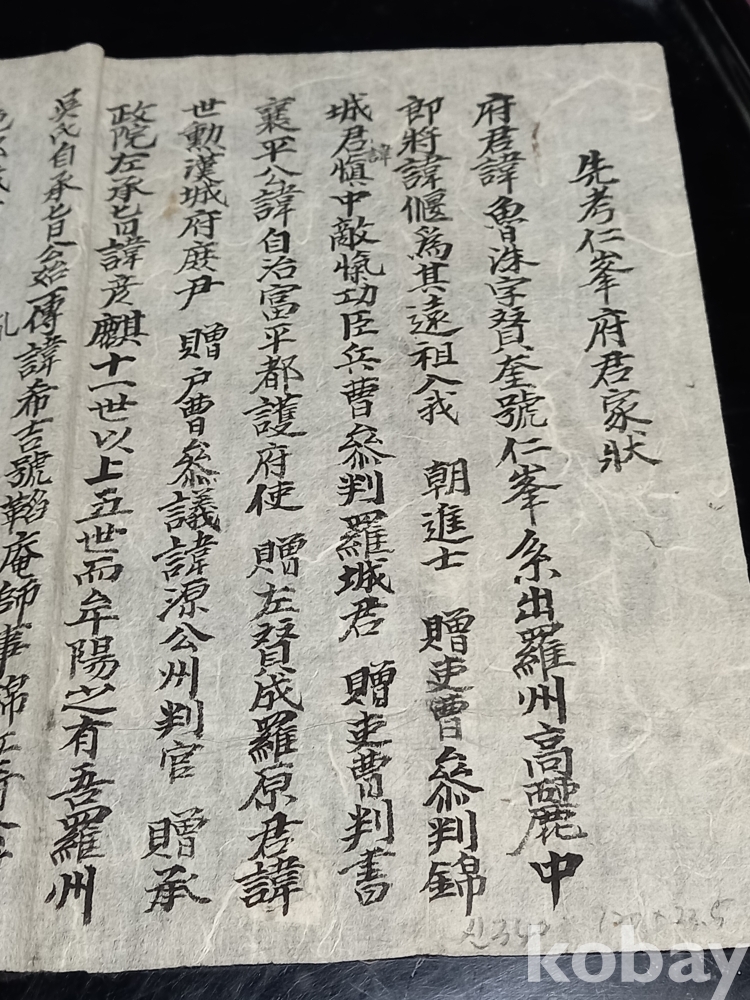 先考仁峯府君家狀
府君諱魯洙字賢奎號仁峯系出羅州高麗中
郎將諱偃爲其遠祖入我 朝進士 贈吏曹叅判錦
城君諱愼中敵愾功臣兵曹叅判羅城君 贈吏曹判書
襄平公諱自治富平都護府使 贈左贊成羅原君諱
世勳漢城府庶尹 贈戶曹叅議諱源公州判官 贈承
政院左承旨諱彦麒十一世以上五世而牟陽之有吾羅州
吳氏自承旨公始一傳諱希吉號韜庵師事錦
kobay